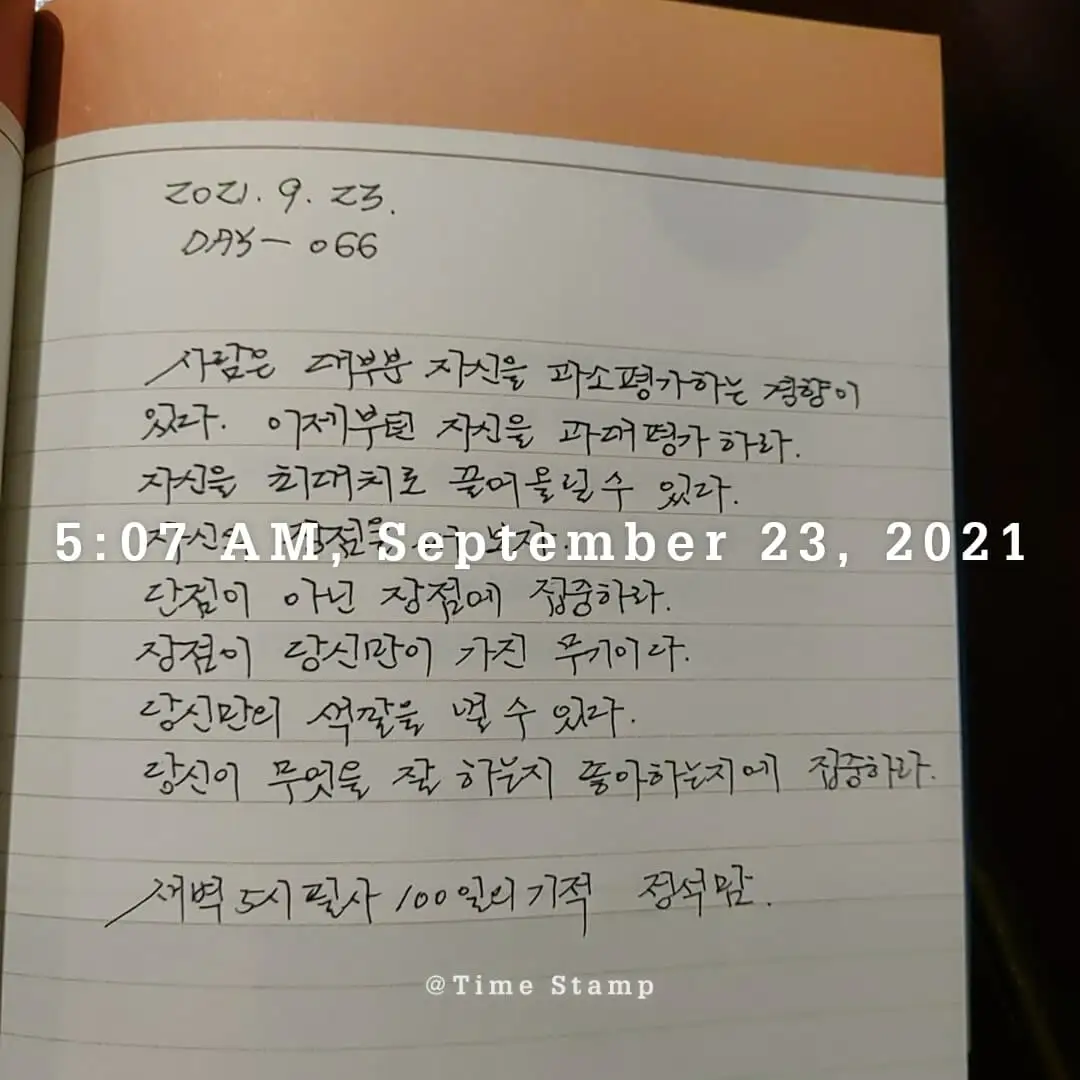 2021. 9. 23.
DAY - 066
사람은 대부분 자신을 과소평가하는 경향이
있다. 이제부턴 자신을 과대평가하라.
자신을 최대치로 끌어올릴 수 있다.
5:07 AM, September 23, 2021
단점이 아닌 장점에 집중하라.
장점이 당신만이 가진 무기이다.
당신만의 색깔을 낼 수 있다.
당신이 무엇을 잘 하는지 좋아하는지에 집중하라.
새벽 5시 필사 100일의 기적 정석맘.
@Time Stamp